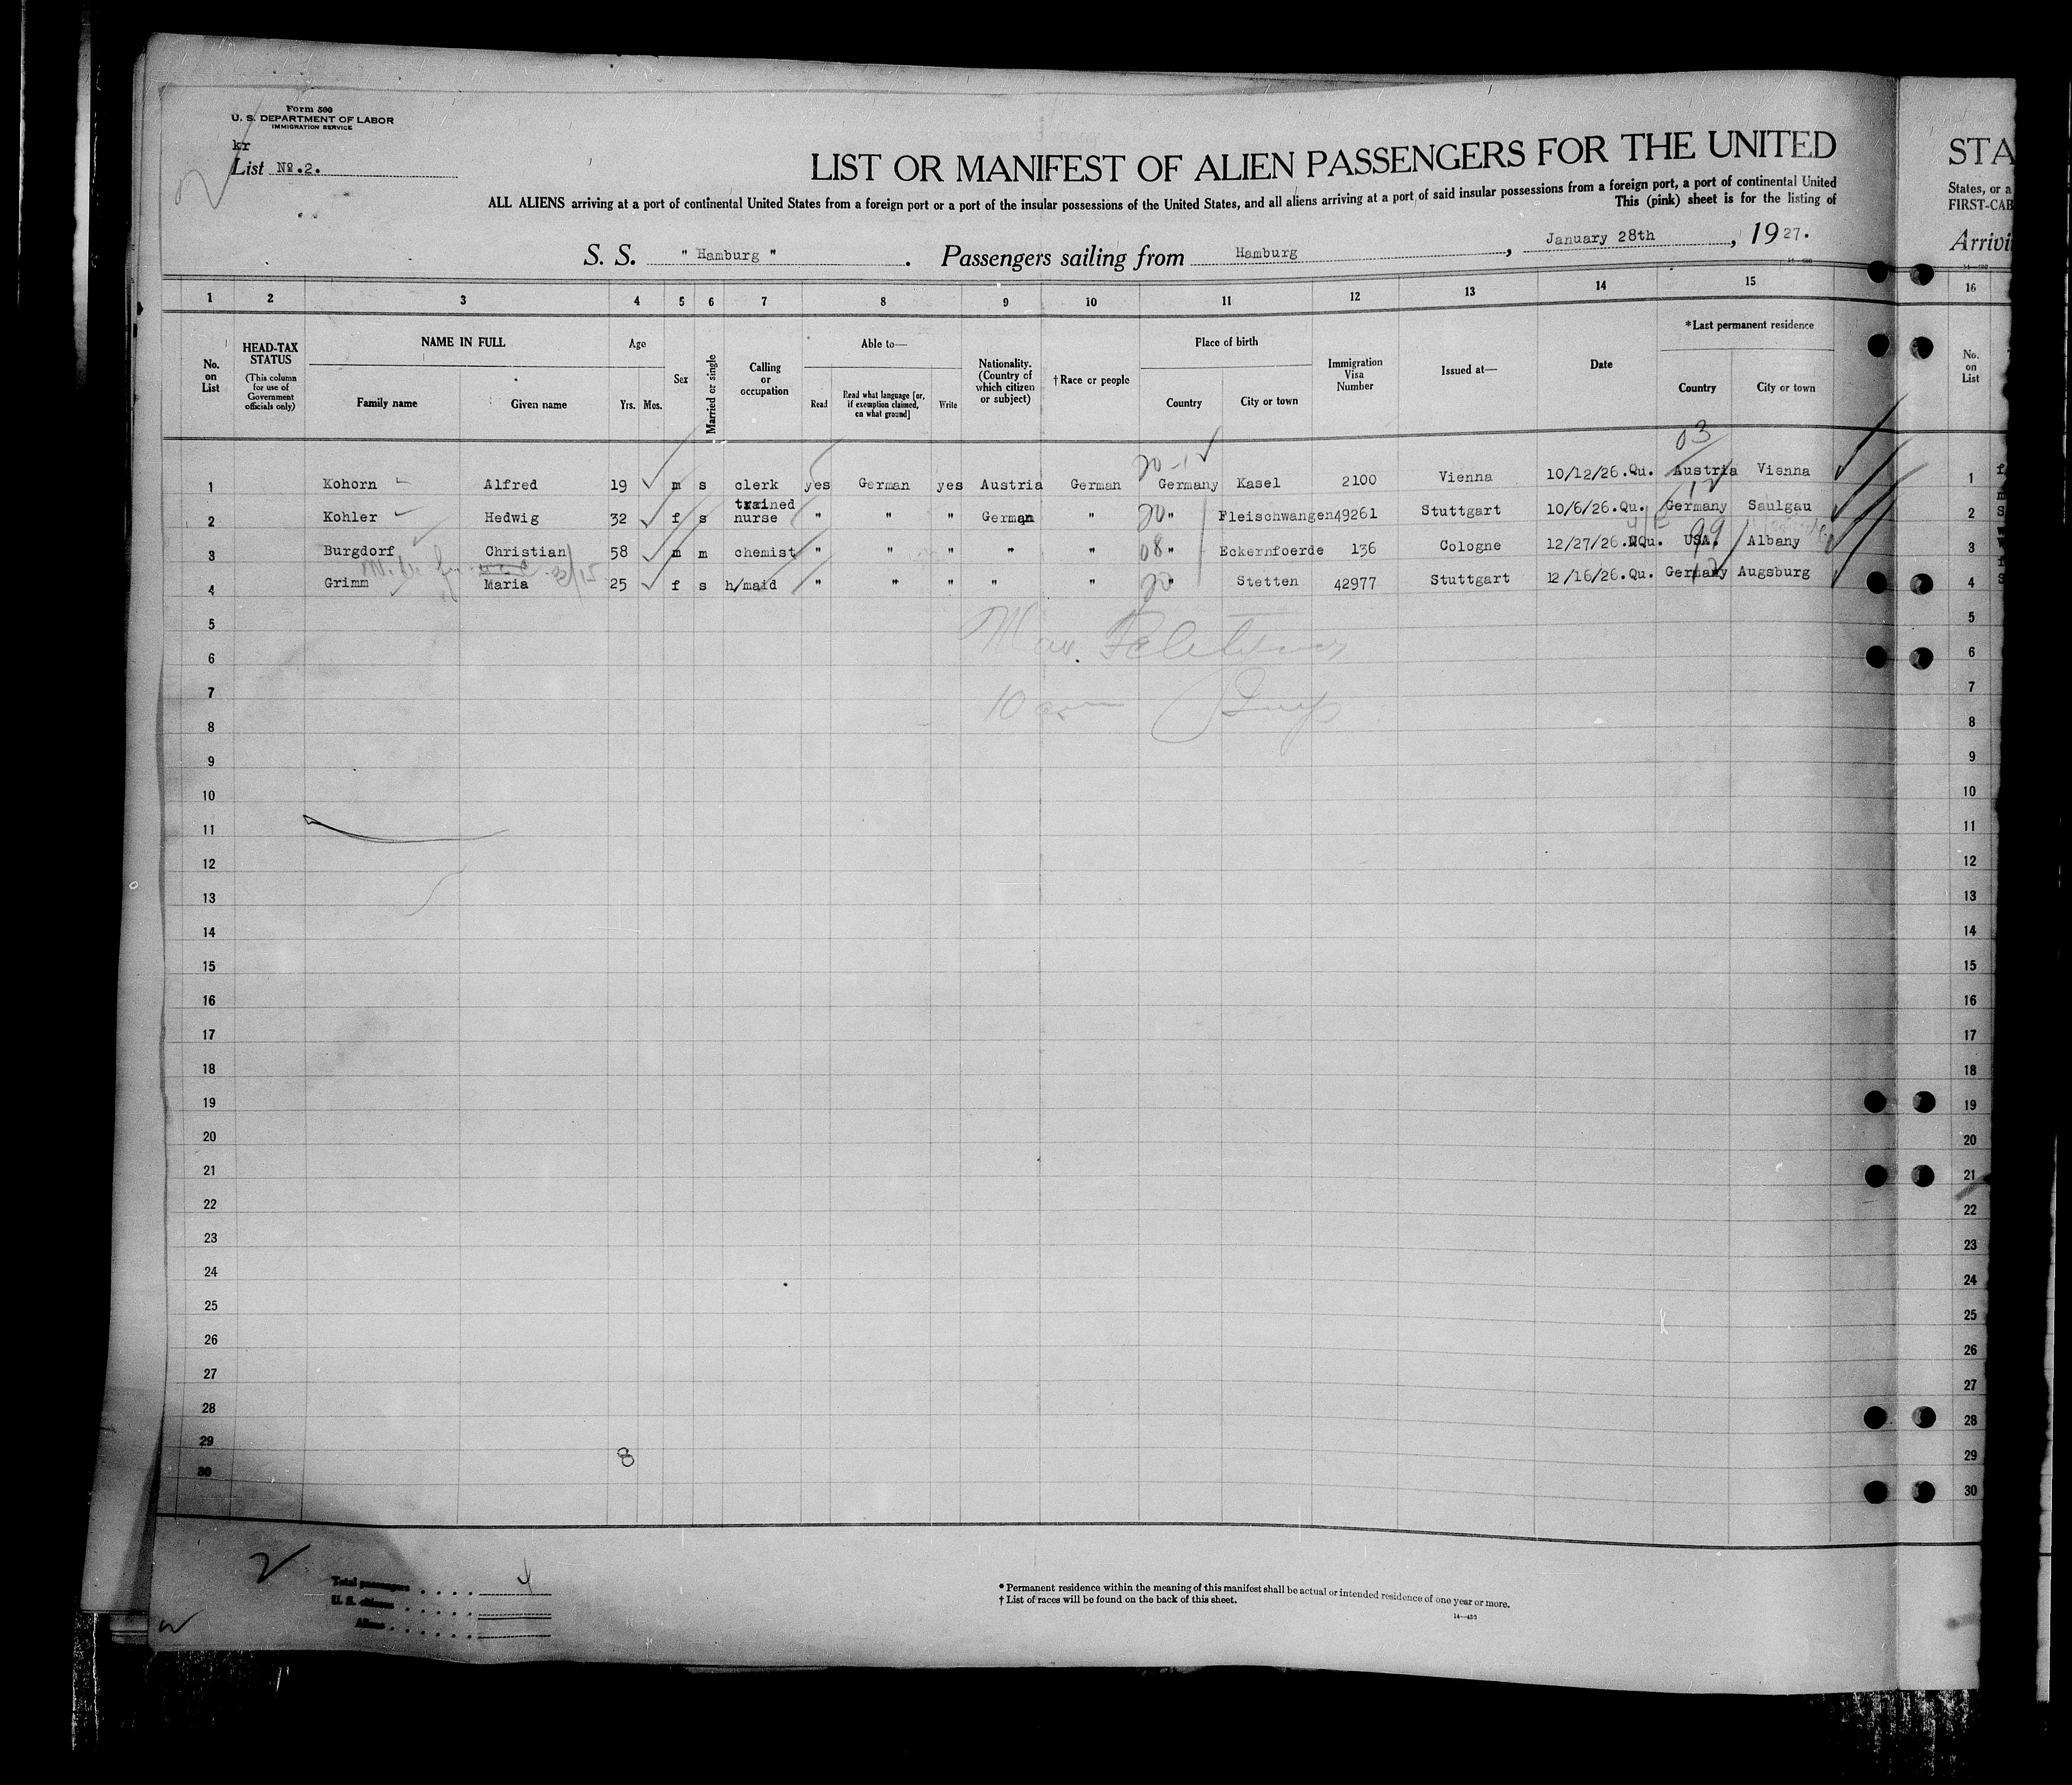 Form 500
U. S. DEPARTMENT OF LABOR
IMMIGRATION SERVICE
kr
List No.2.
LIST OR MANIFEST OF ALIEN PASSENGERS FOR THE UNITED
ALL ALIENS arriving at a port of continental United States from a foreign port or a port of the insular possessions of the United States, and all aliens arriving at a port of said insular possessions from a foreign port, a port of continental United
This (pink) sheet is for the listing of
S. S. " Hamburg " . Passengers sailing from Hamburg , January 28th , 1927.
STA
States, or a
FIRST-CAB
Arrivi
1 2 3 4 5 6 7 8 9 10 11 12 13 14 15 16
No. on List
HEAD-TAX STATUS
(This column for use of Government officials only)
NAME IN FULL
Family name Given name
Age
Yrs. Mos.
Sex
Married or single
Calling or occupation
Able to—
Read
Read what language [or, if exemption claimed, on what ground]
Write
Nationality. (Country of which citizen or subject)
†Race or people
Place of birth
Country City or town
Immigration Visa Number
Issued at—
Date
*Last permanent residence
Country City or town
No. on List
03
20-12
1 Kohorn Alfred 19 m s clerk yes German yes Austria German Germany Kasel 2100 Vienna 10/12/26.Qu. Austria Vienna 1
12
2 Kohler Hedwig 32 f s trained nurse " " " German " 20 " Fleischwangen 49261 Stuttgart 10/6/26.Qu. Germany Saulgau 2
99
3 Burgdorf Christian 58 m m chemist " " " " " 08 " Eckernfoerde 136 Cologne 12/27/26.NQu. USA. Albany 3
12
4 Grimm Maria 25 f s h/maid " " " " " 20 " Stetten 42977 Stuttgart 12/16/26.Qu. Germany Augsburg 4
5 5
6 6
7 10 am 7
8 8
9 9
10 10
11 11
12 12
13 13
14 14
15 15
16 16
17 17
18 18
19 19
20 20
21 21
22 22
23 23
24 24
25 25
26 26
27 27
28 28
29 8 29
30 30
2
Total passengers . . . . 4
U. S. citizens . . . . .
Aliens . . . . . .
* Permanent residence within the meaning of this manifest shall be actual or intended residence of one year or more.
† List of races will be found on the back of this sheet.
14—430